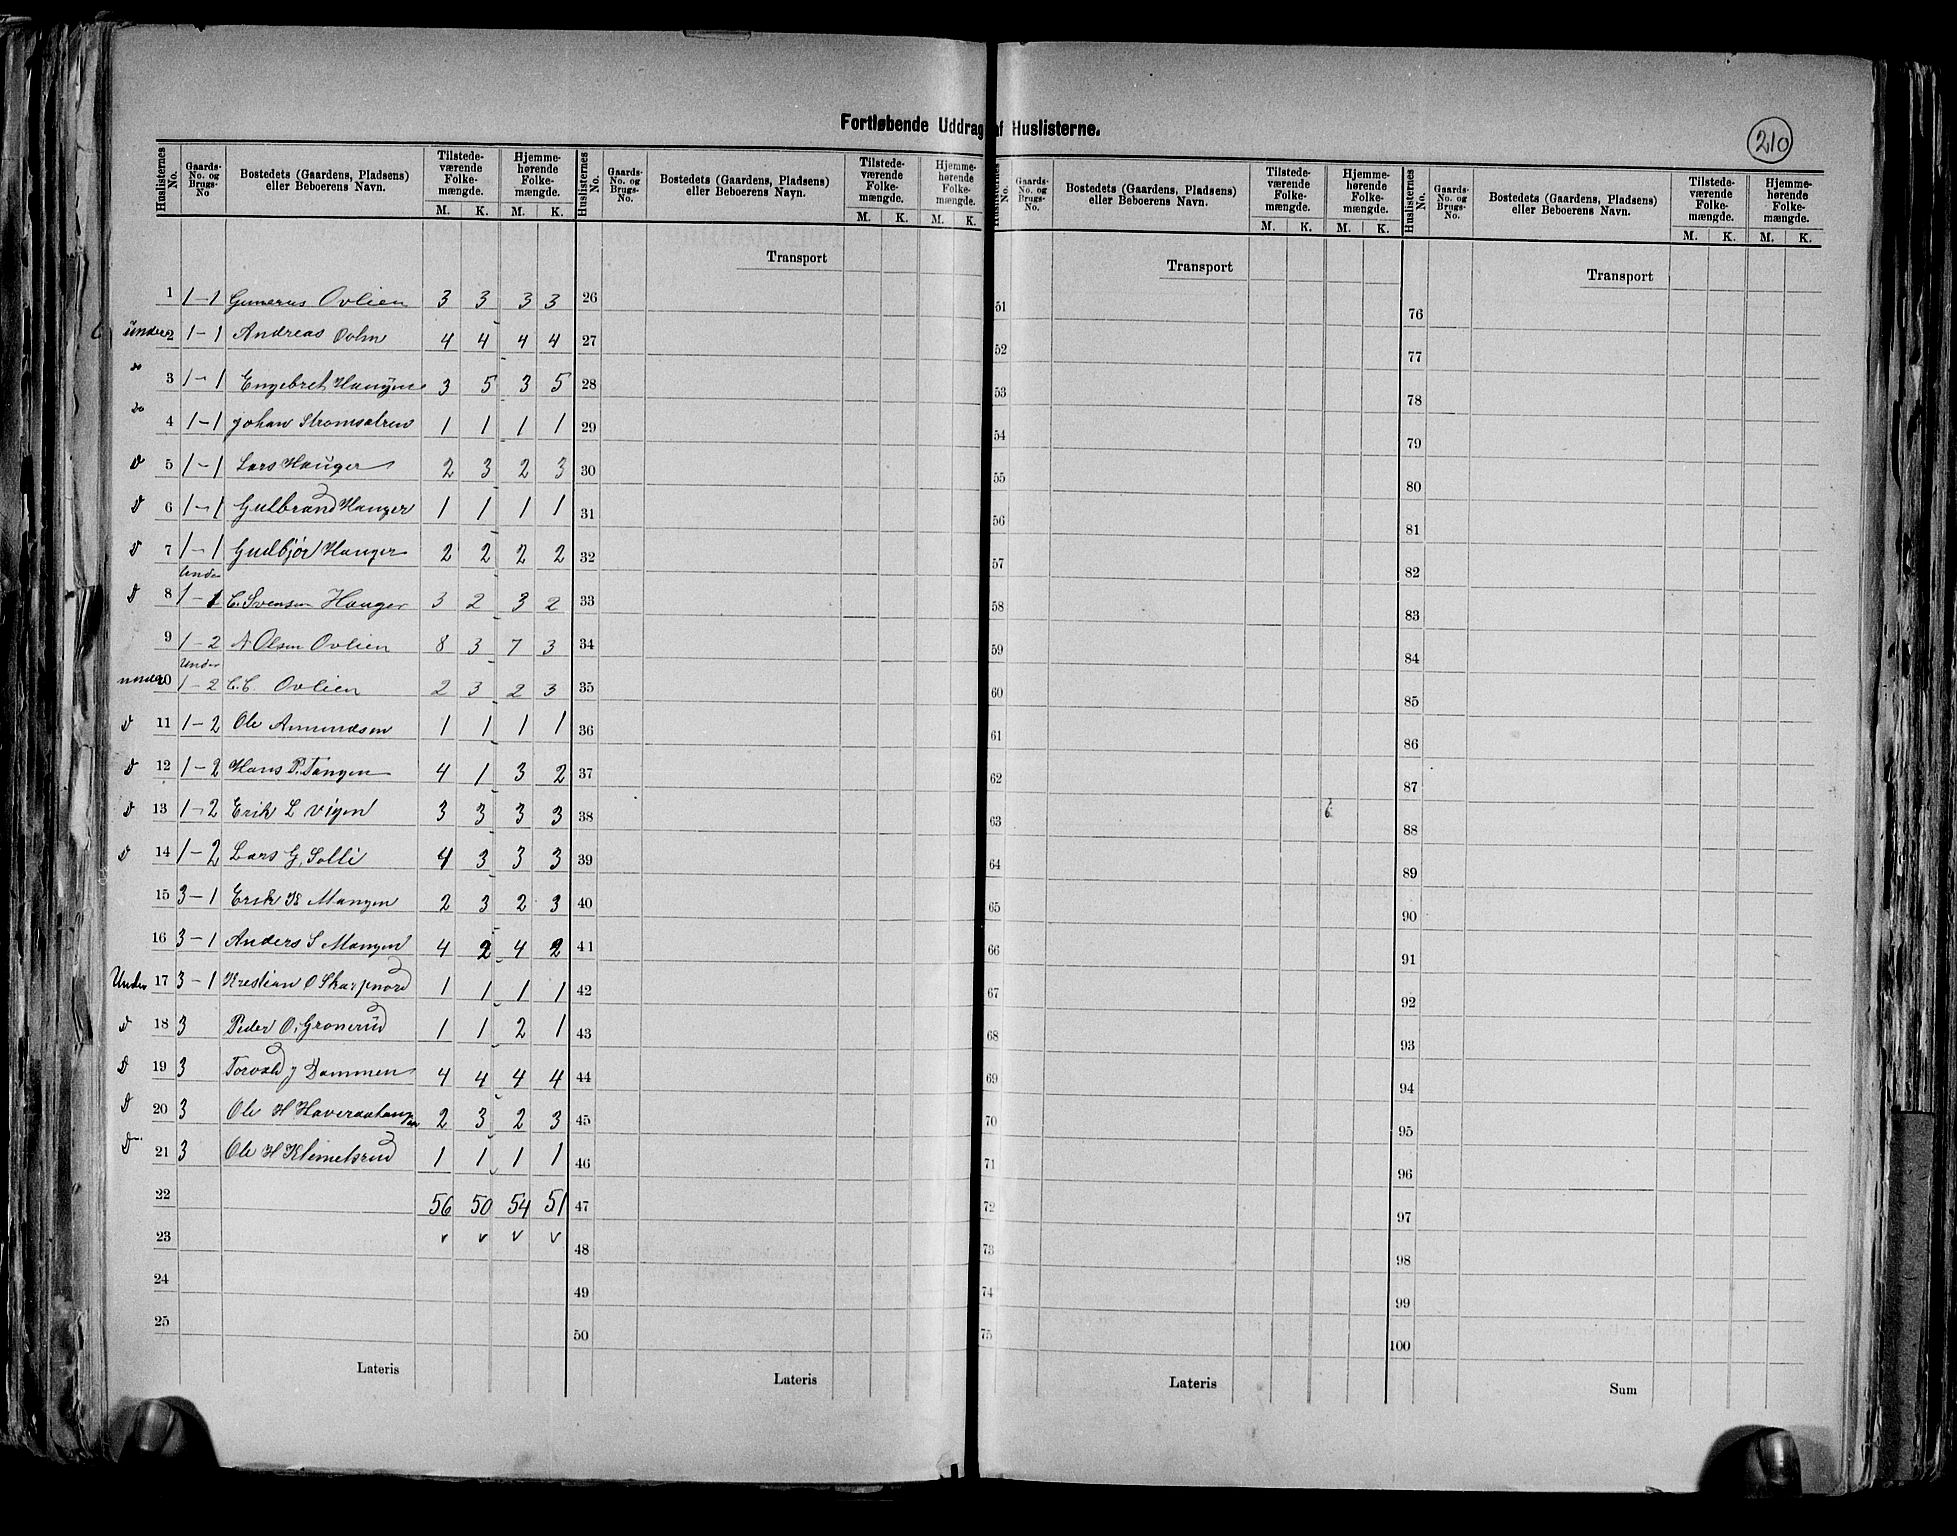 Fortløbende Uddrag af Huslisterne.
210
Huslisternes No. | Gaards-No. og Brugs-No | Bostedets (Gaardens, Pladsens) eller Beboerens Navn. | Tilstedeværende Folkemængde. M. K. | Hjemmehørende Folkemængde. M. K.
1 1-1 Gunerus Ovlien 3 3 3 3
under 2 1-1 Andreas Ovlien 4 4 4 4
do 3 1-1 Engebret Haugen 3 5 3 5
do 4 1-1 Johan Stromsætren 1 1 1 1
d 5 1-1 Lars Hauger 2 3 2 3
d 6 1-1 Gulbrand Hauger 1 1 1 1
d 7 1-1 Gudbjør Hauger 2 2 2 2
Under
d 8 1-1 C. Svensen Hauger 3 2 3 2
9 1-2 A Olsen Ovlien 8 3 7 3
Under
under 10 1-2 C.C. Ovlien 2 3 2 3
d 11 1-2 Ole Amundsen 1 1 1 1
d 12 1-2 Hans P. Tangen 4 1 3 2
d 13 1-2 Erik L Vigen 3 3 3 3
d 14 1-2 Lars G. Solli 4 3 3 3
15 3-1 Erik K Mangen 2 3 2 3
16 3-1 Anders S Mangen 4 2 4 2
Under 17 3-1 Kristian O Skarpnord 1 1 1 1
d 18 3 Peder O. Gronerud 1 1 2 1
d 19 3 Torvald J Dammen 4 4 4 4
d 20 3 Ole H Haveraahaugen 2 3 2 3
d 21 3 Ole H Klemetsrud 1 1 1 1
22 56 50 54 51
23 v v v v
24
25
Lateris
Huslisternes No. | Gaards-No. og Brugs-No. | Bostedets (Gaardens, Pladsens) eller Beboerens Navn. | Tilstedeværende Folkemængde. M. K. | Hjemmehørende Folkemængde. M. K.
Transport
26
27
28
29
30
31
32
33
34
35
36
37
38
39
40
41
42
43
44
45
46
47
48
49
50
Lateris
Huslisternes No. | Gaards-No. og Brugs-No | Bostedets (Gaardens, Pladsens) eller Beboerens Navn. | Tilstedeværende Folkemængde. M. K. | Hjemmehørende Folkemængde. M. K.
Transport
51
52
53
54
55
56
57
58
59
60
61
62
63
64
65
66
67
68
69
70
71
72
73
74
75
Lateris
Huslisternes No. | Gaards-No. og Brugs-No. | Bostedets (Gaardens, Pladsens) eller Beboerens Navn. | Tilstedeværende Folkemængde. M. K. | Hjemmehørende Folkemængde. M. K.
Transport
76
77
78
79
80
81
82
83
84
85
86
87
88
89
90
91
92
93
94
95
96
97
98
99
100
Sum